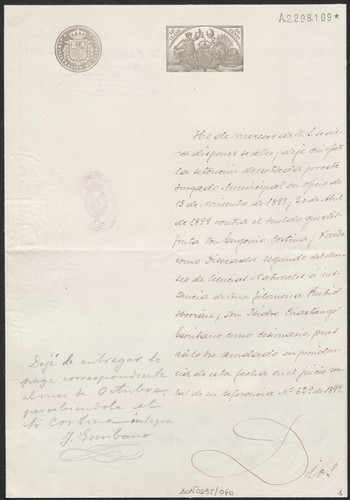 A2298109*
He de merecer de V. S. se sir
va disponer se alce y deje sin efecto
la retencion decretada por este
Juzgado Municipal en oficio de
15 de Noviembre de 1897, 20 de Abril
de 1899 contra el sueldo que dis
fruta Don Eugenio Cortina y
como Disecador segundo del Mu
seo de Ciencias Naturales, á ins
tancia de Doña Filomena
y Don Isidro
Escribano como cesionario, pues
asi lo he acordado en providen
cia de esta fecha en el juicio ver
bal de su referencia Nº 622 de 1897.
Dios
Dejé de entregar la
paga correspondiente
al mes de Octubre,
percibiendola el
Sr Cortina integra
J. Escribano
ACN0287/040